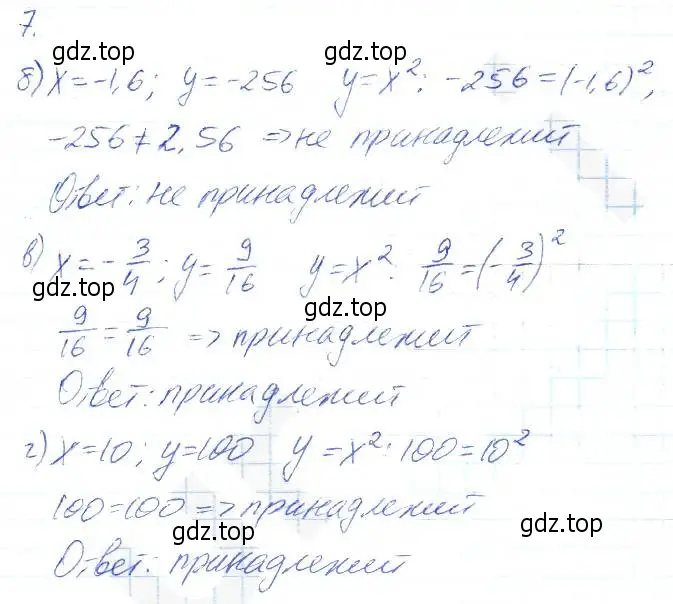 7.
gdz.top gdz.top
б) x=-1,6; y=-256 y=x²: -256=(-1,6)²,
-256≠2,56 => не принадлежит
Ответ: не принадлежит
в) x=-3/4; y=9/16 y=x²: 9/16=(-3/4)²
gdz.top gdz.top
9/16=9/16 => принадлежит
Ответ: принадлежит
г) x=10; y=100 y=x²: 100=10²
100=100 => принадлежит
gdz.top gdz.top
Ответ: принадлежит